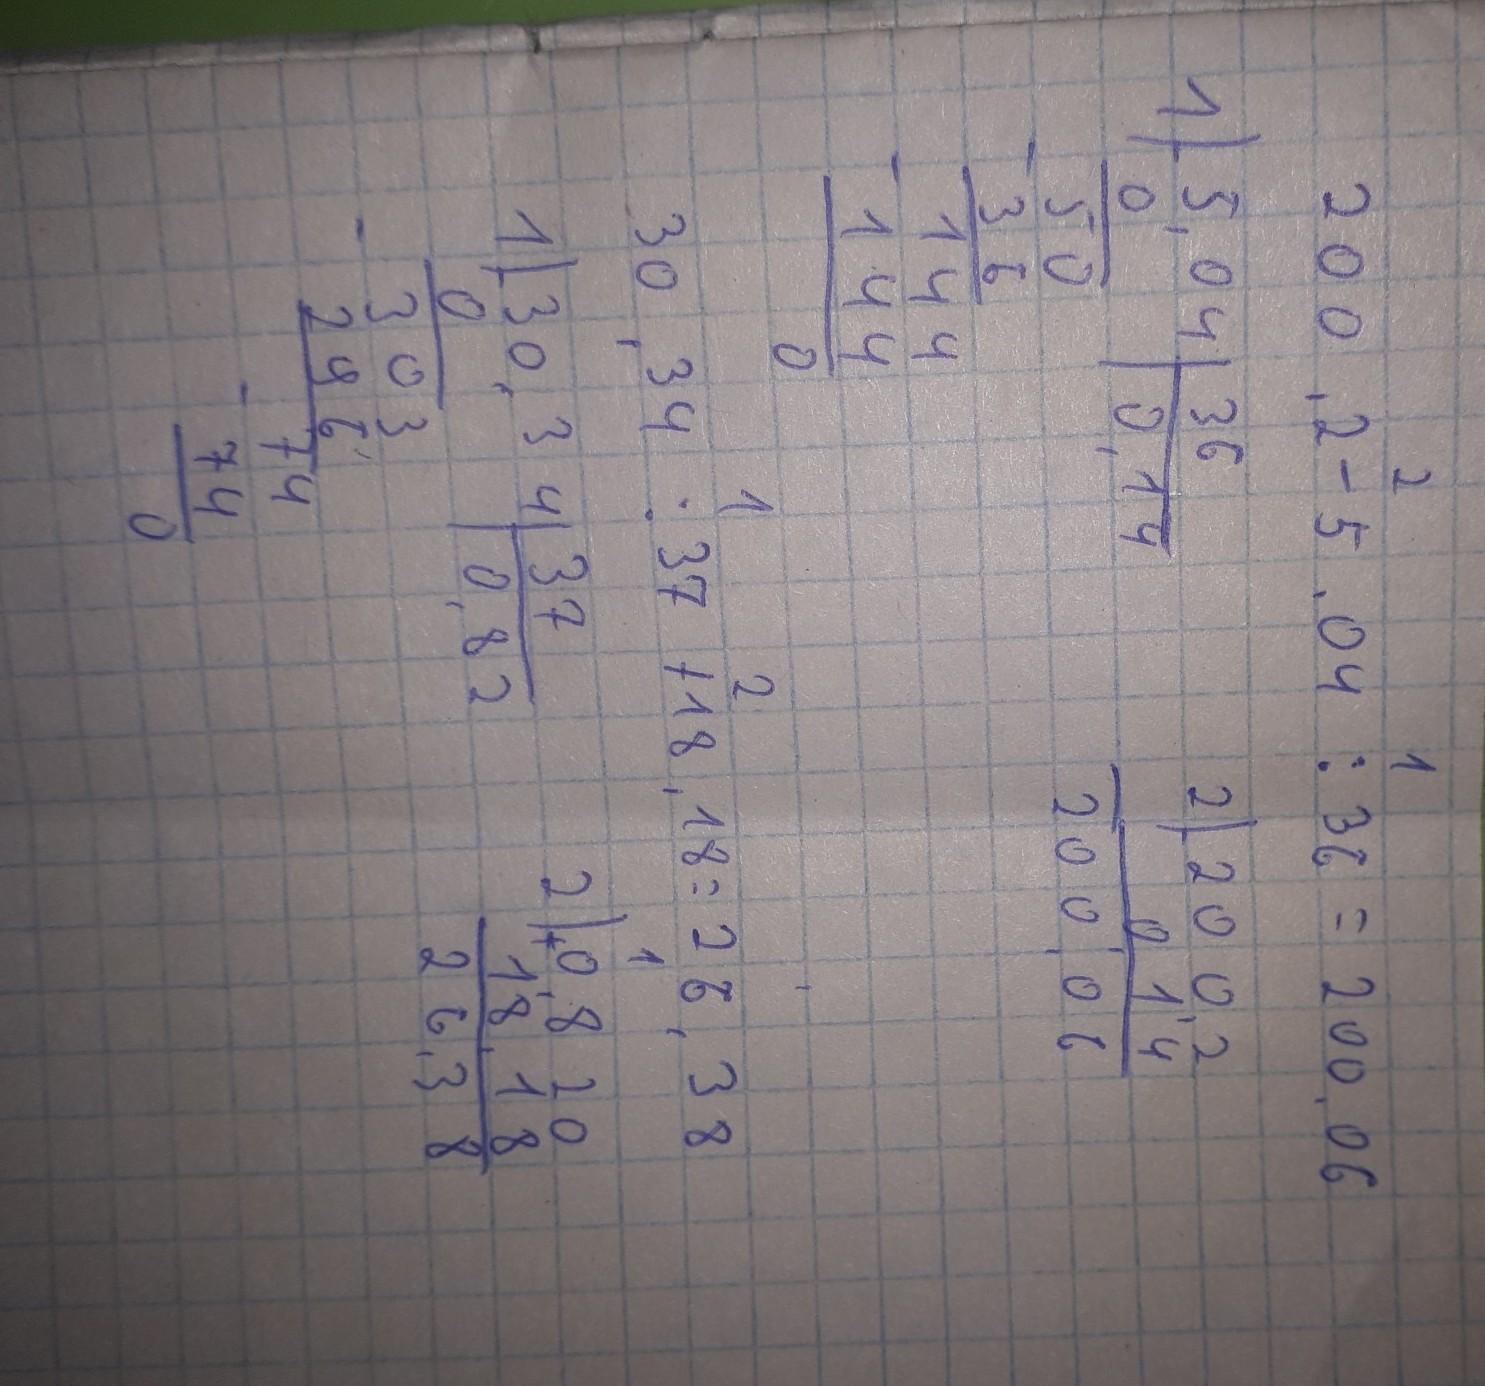 2 1
200,2-5,04:36=200,06
1) 5,04 36 2) 200,2
0 0,14 0 1,4
- 50 200,06
36
- 144
144
0
1 2
30,34:37+18,18=26,38
1
1) 30,34 37 2) + 0,820
0 0,82 18,18
- 303 26,38
296
- 74
74
0